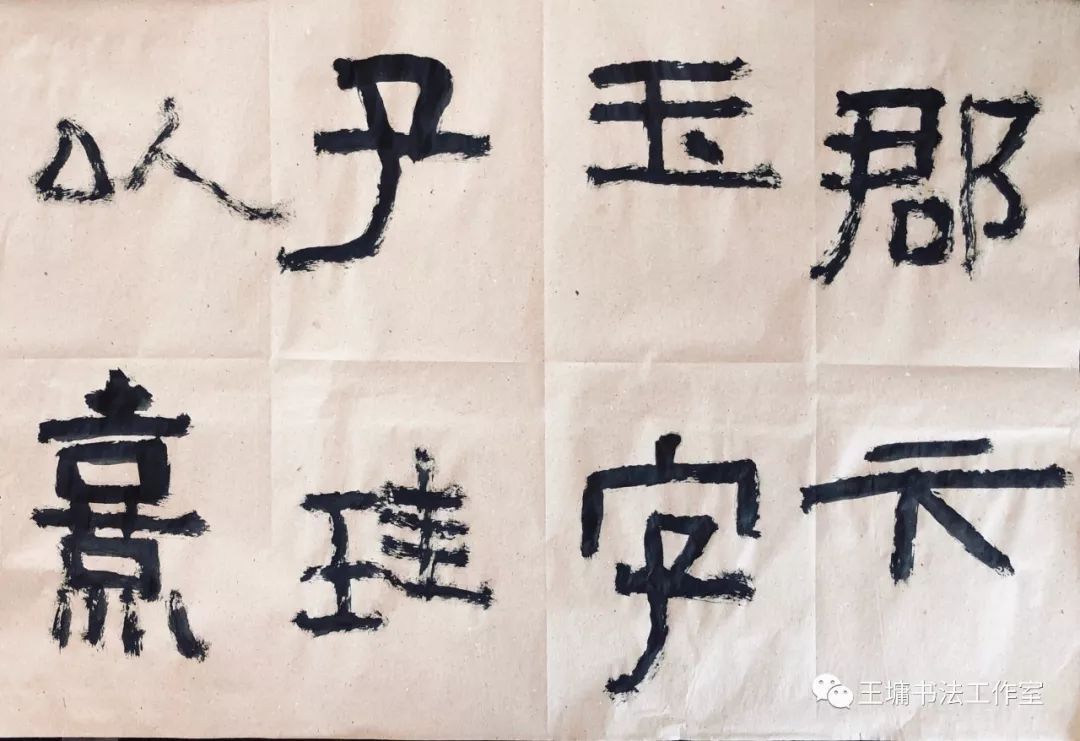 郡卞
玉字
子珪
以熹
王墉书法工作室